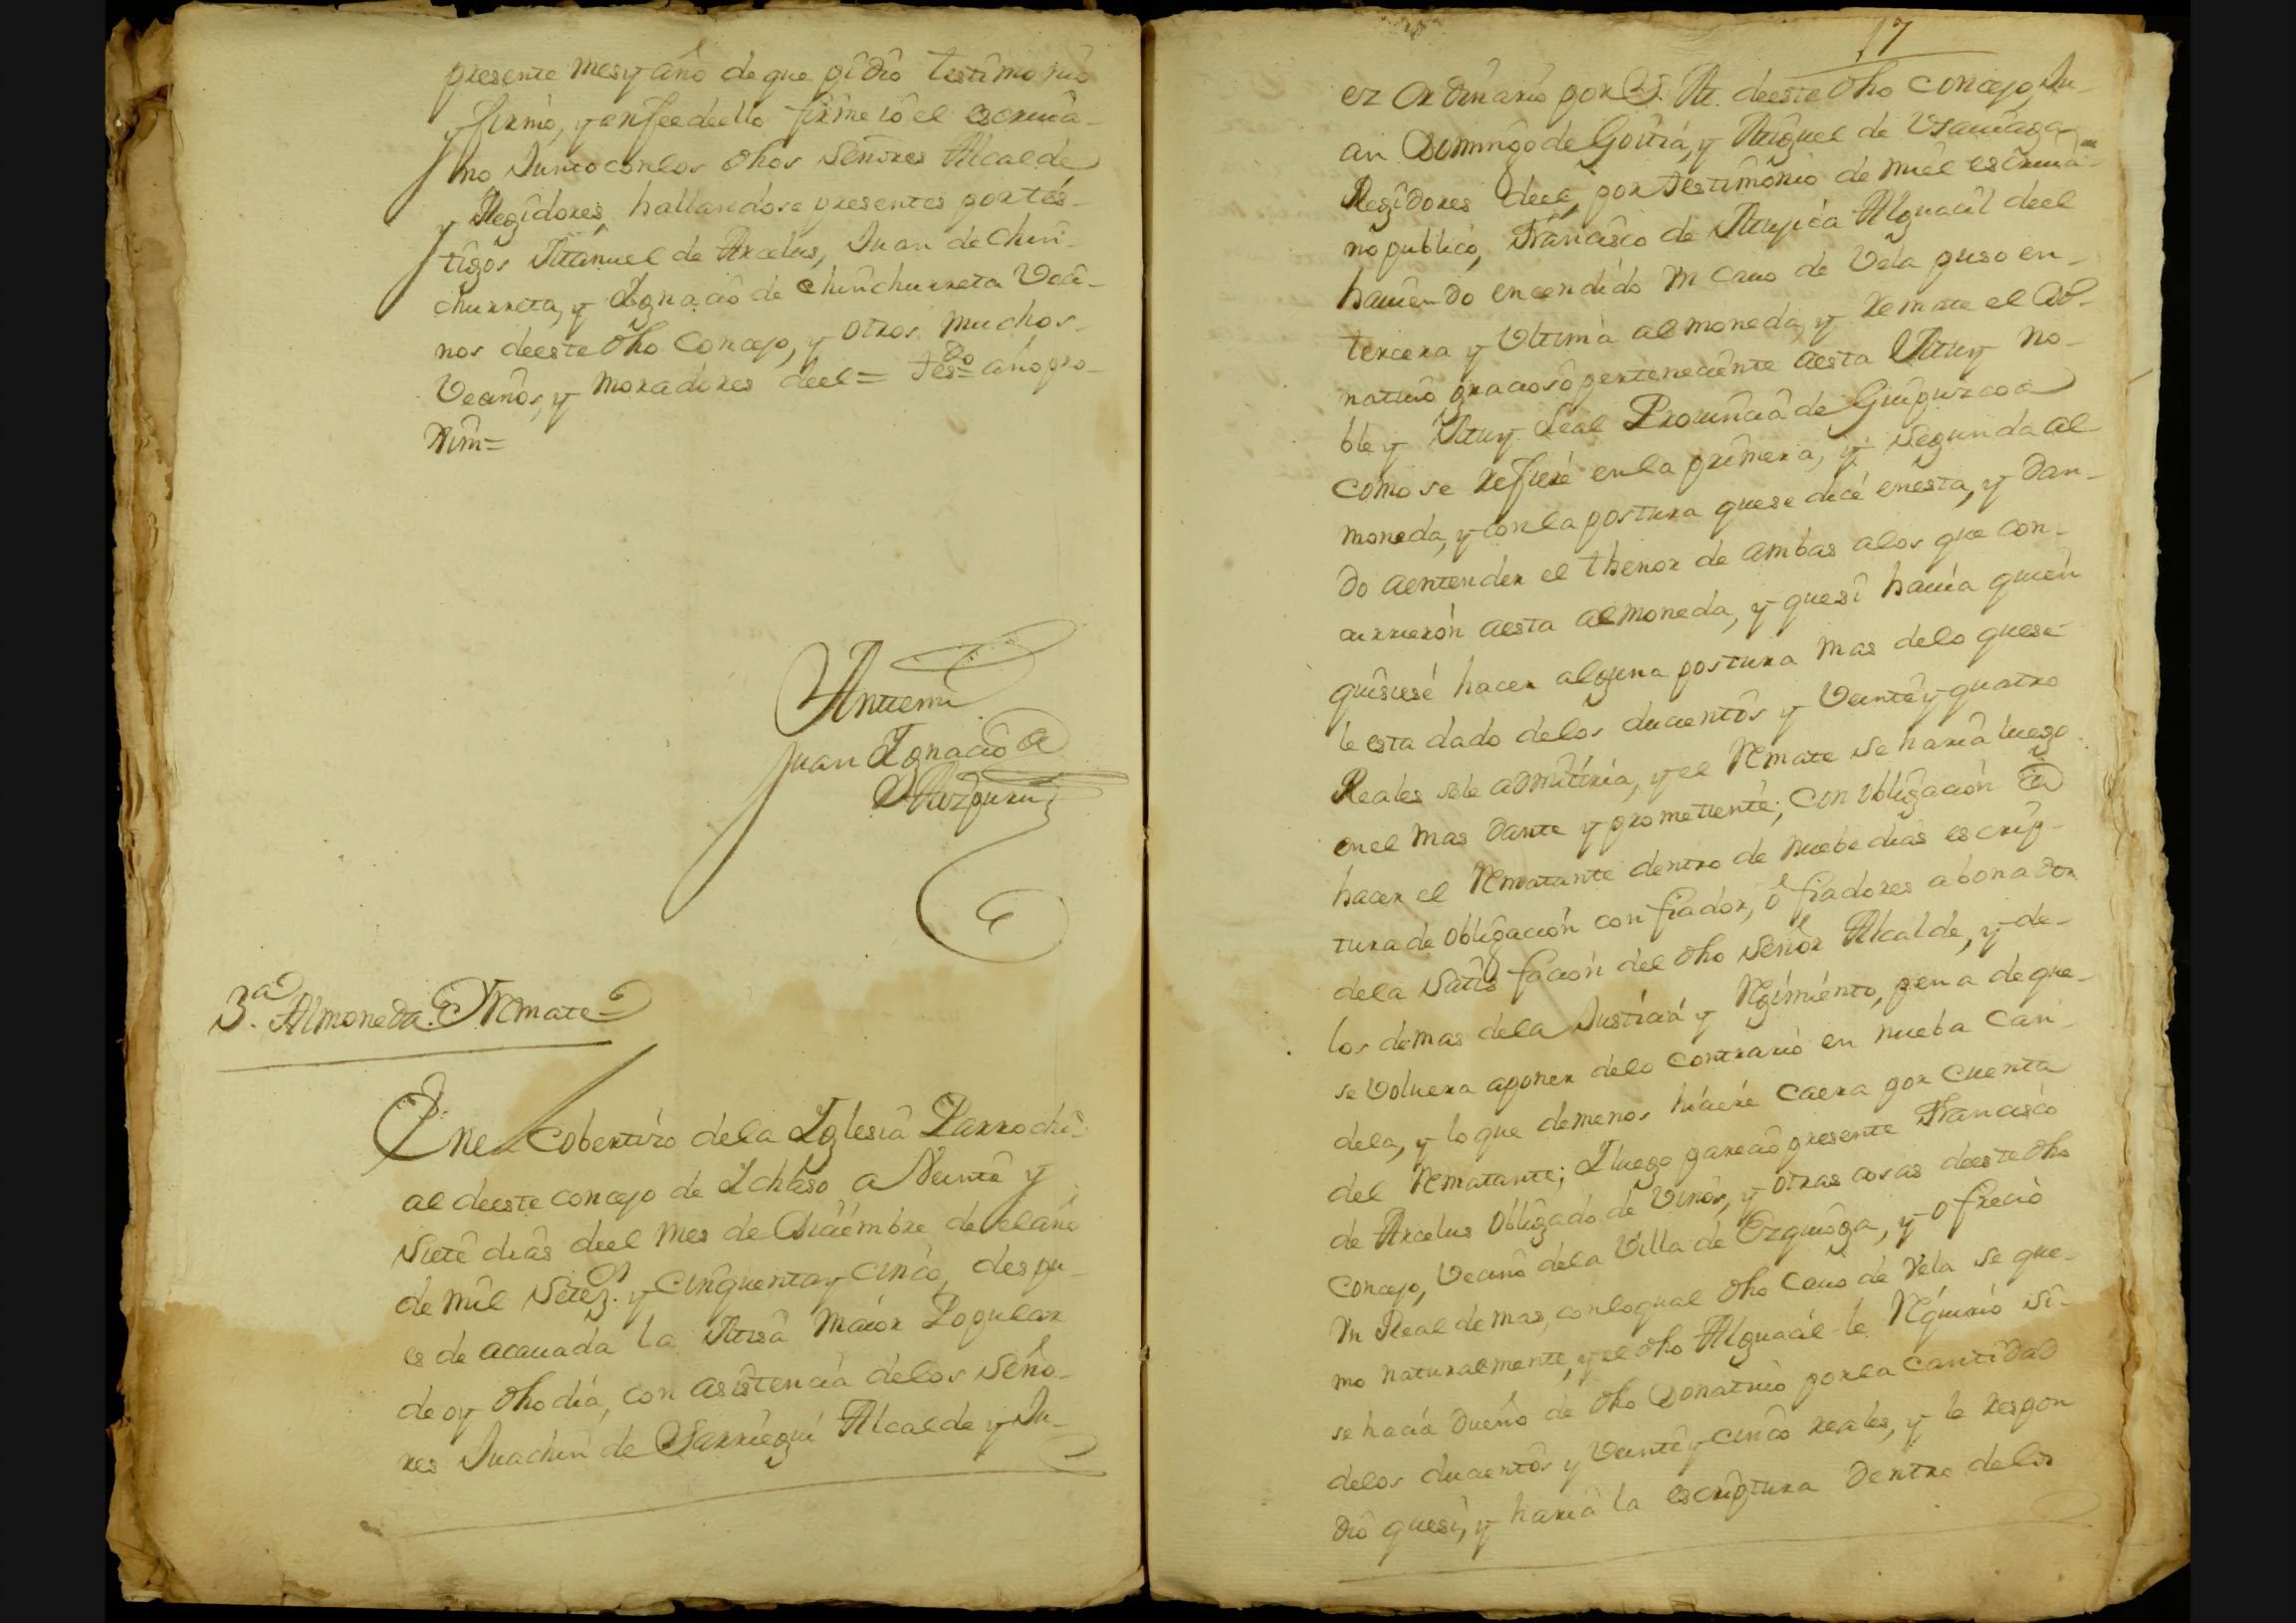 presente mes y año de que pidio testimonio
y firmó, y en fee de ello firme Yo el escriua-
no Junto con los dhos Señores Alcalde
y Regidores, hallandose presentes por tes-
tigos Manuel de Arcelus, Juan de Chin-
churreta, y Ignacio de Chinchurreta Veci-
nos de este dho Concejo, y otros muchos
Vecinos, y moradores de el = Tesdo = año pro-
Antemi
Juan Ignacio de
Aizpuru
3.a Almoneda. Remate
En el Cobertizo de la Iglesia Parrochi-
al de este concejo de Ichaso a Veinte y
Siete dias de el mes de Diciembre de el año
de mil Setez.os y Cinquenta y Cinco, despu-
es de acauada la Misa Maior Popular
de oy dho dia, con asistencia de los Seño-
res Juachin de Sarriegui Alcalde y Ju-
17
ez Ordinario por S. M. de este dho Concejo, Ju-
an Domingo de Goitia, y Miguel de Vsarraga
Regidores de el, por testimonio de mi el escriua-
no publico, Francisco de Mugica Alguacil de el
hauiendo encendido vn cauo de Vela puso en
tercera y Vltima almoneda, y remate el Do-
natiuo gracioso perteneciente a esta Muy No-
ble y Muy Leal Prouincia de Guipuzcoa
como se refiere en la primera, y Segunda al-
moneda, y con la postura que se dice en esta, y dan-
do aentender el thenor de ambas alos que con-
currieron aesta almoneda, y que si hauia quien
quisiese hacer alguna postura mas delo que se
le esta dado delos ducientos y Veinte y quatro
Reales sele admitiria, y el Remate se haria luego
en el mas dante y prometiente; con obligacion de
hacer el Rematante dentro de nuebe dias escrip-
tura de obligacion con fiador, ó fiadores abonador
dela Satisfacion del dho Señor Alcalde, y de-
los demas dela Justicia y Regimiento, pena de que
se Voluera aponer delo contrario en nueba Can-
dela, y lo que demenos hiciere caera por cuenta
del Rematante; I luego parecio presente Francisco
de Arcelus Obligado de Vinos, y otras cosas de este dho
Concejo, Vecino dela Villa de Ezquioga, y ofrecio
vn Real de mas, con loqual dho Cauo de Vela se que-
mo naturalmente, y el dho Alguacil le Requirio si
se hacia dueño de dho Donatiuo por la cantidad
delos ducientos y Veinte y cinco reales, y le respon
dio que si, y haria la escriptura dentro delos